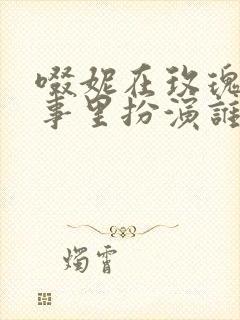 啜妮在玫瑰
事里扮演誰
燭霄